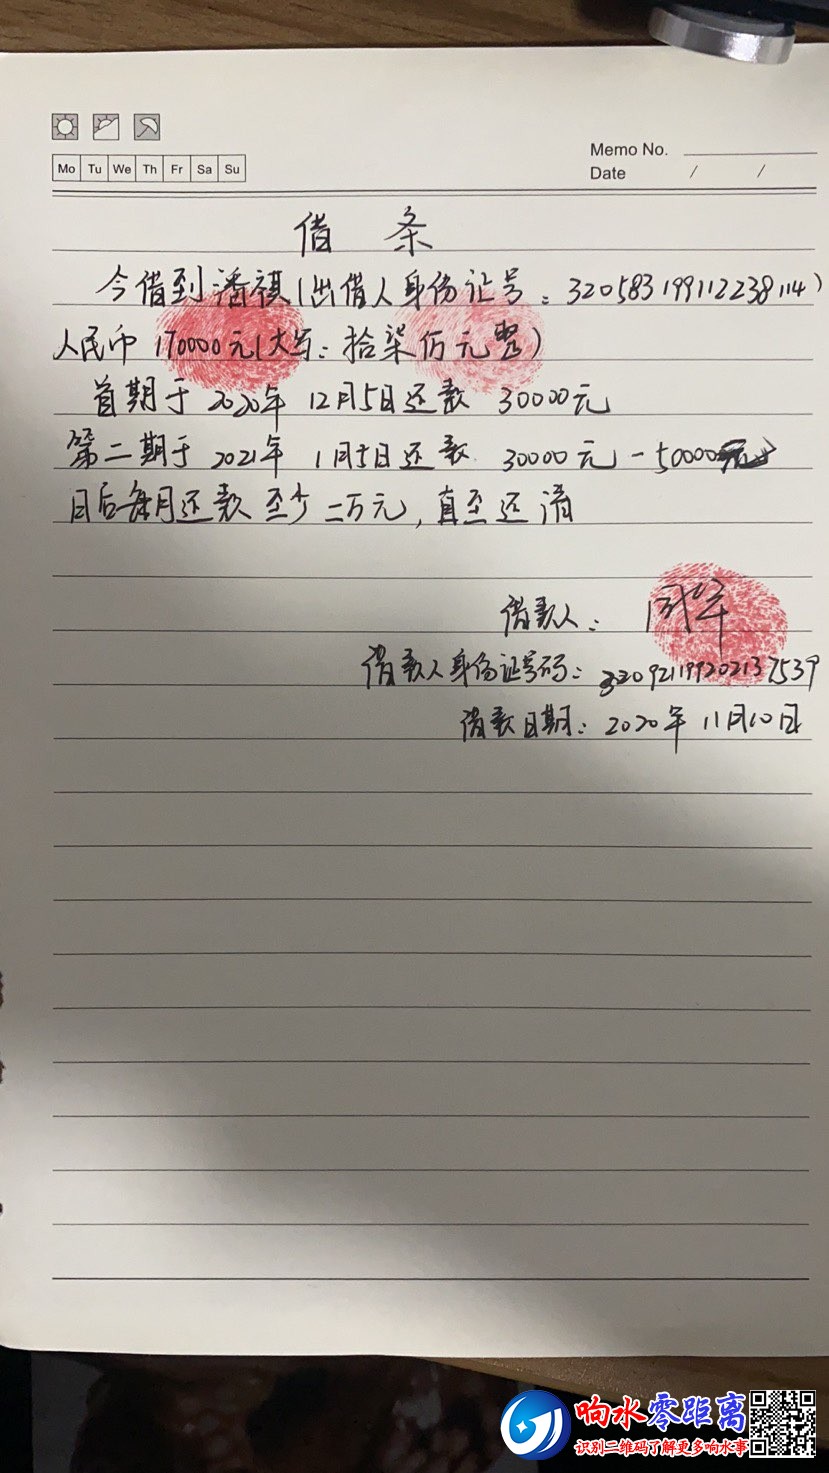 Mo Tu We Th Fr Sa Su
Memo No.
Date / /
借 条
今借到潘祺(出借人身份证号:320583199112238114)
人民币 170000元(大写:拾柒万元整)
首期于 2020年 12月5日还款 30000元
第二期于 2021年 1月5日还款 30000元-50000元
日后每月还款至少二万元,直至还清
借款人:
借款人身份证号码:320921199202137539
借款日期:2020年11月10日
响水零距离
识别二维码了解更多响水事